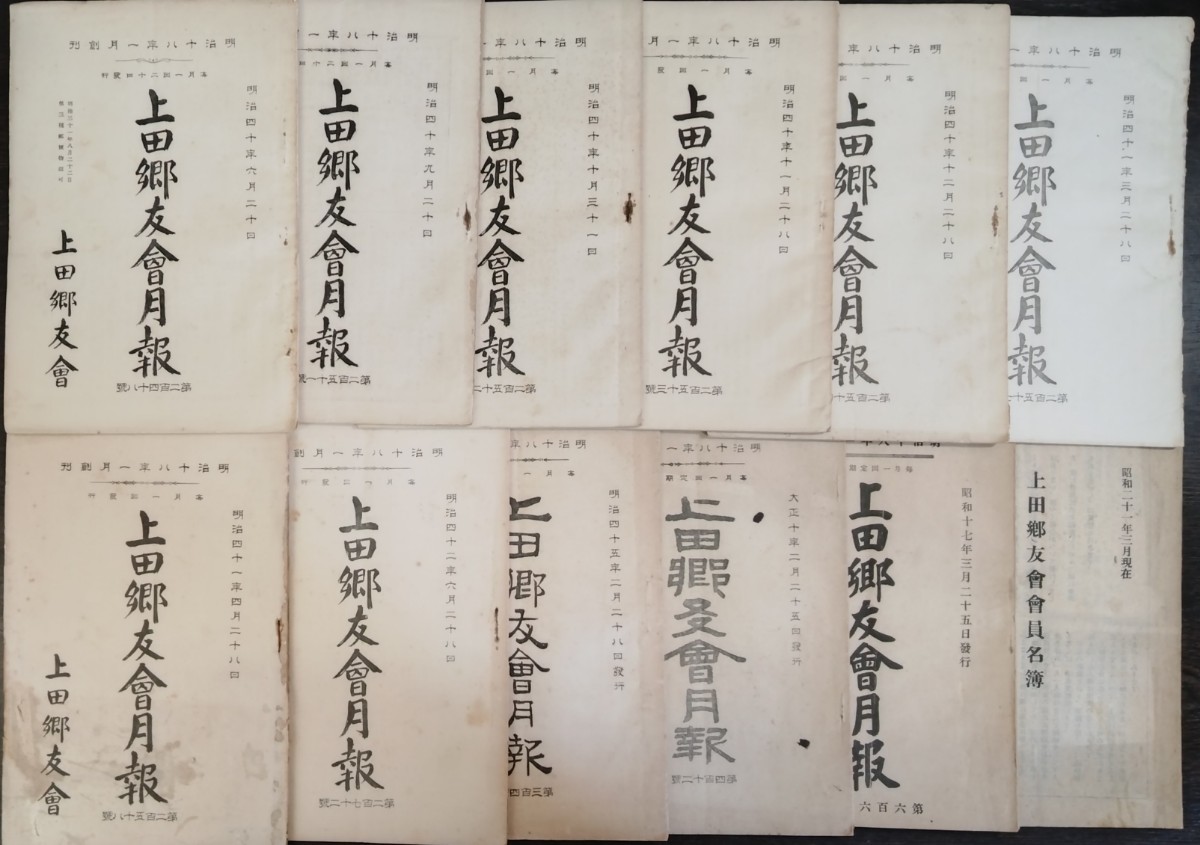 明治十八年一月創刊
毎月一回二十四日發行
明治四十年六月二十四日
上田郷友會月報
上田郷友會
第二百四十八號
明治十八年一
毎月一回二十四
明治四十年九月二十四日
上田郷友會月報
第二百五十一號
明治十八年一
毎月一回
明治四十年十月三十一日
上田郷友會月報
第二百五十二
明治十八年一月
毎月一回發
明治四十年十一月二十八日
上田郷友會月報
第二百五十三號
明治十八年一
毎月一回
明治四十年十二月二十八日
上田郷友會月報
第二百五十
明治十八年一
毎月一回
明治四十一年三月二十八日
上田郷友會月報
第二百五十
明治十八年一月創刊
毎月一回發行
明治四十一年四月二十八日
上田郷友會月報
上田郷友會
第二百五十八號
明治十八年一月創
毎月一回發行
明治四十二年六月二十八日
上田郷友會月報
第二百七十二號
明治十八年一
毎月一
明治四十五年二月二十八日發行
上田郷友會月報
第三百四
明治十八年一
毎月一回定期
大正十年二月二十五日發行
上田郷友會月報
第四百十二號
明治十八年
毎月一回定期
昭和十七年三月二十五日發行
上田郷友會月報
第六百六
昭和二十一年三月現在
上田鄕友會會員名簿